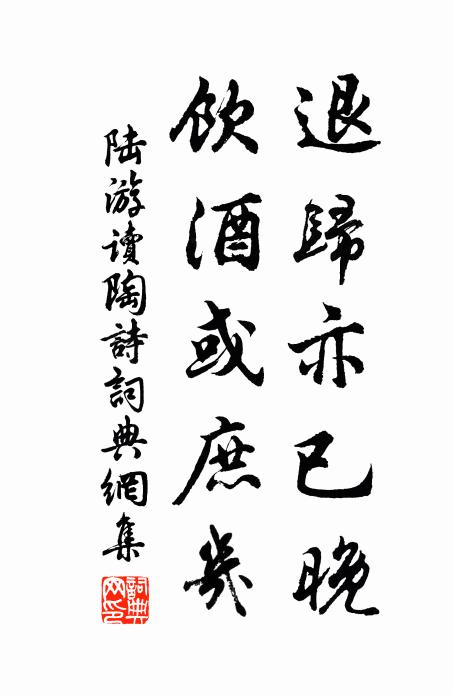 退歸亦已晚
飲酒或庶幾
陸游讀陶詩詞典網集
詞典網印